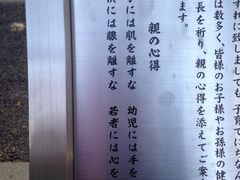 ずれに致しましても子育てにちなん
は数多く、皆様のお子様やお孫様の健
長を祈り、親の心得を添えてご案
ます。
親の心得
には肌を離すな 幼児には手を
には眼を離すな 若者には心を